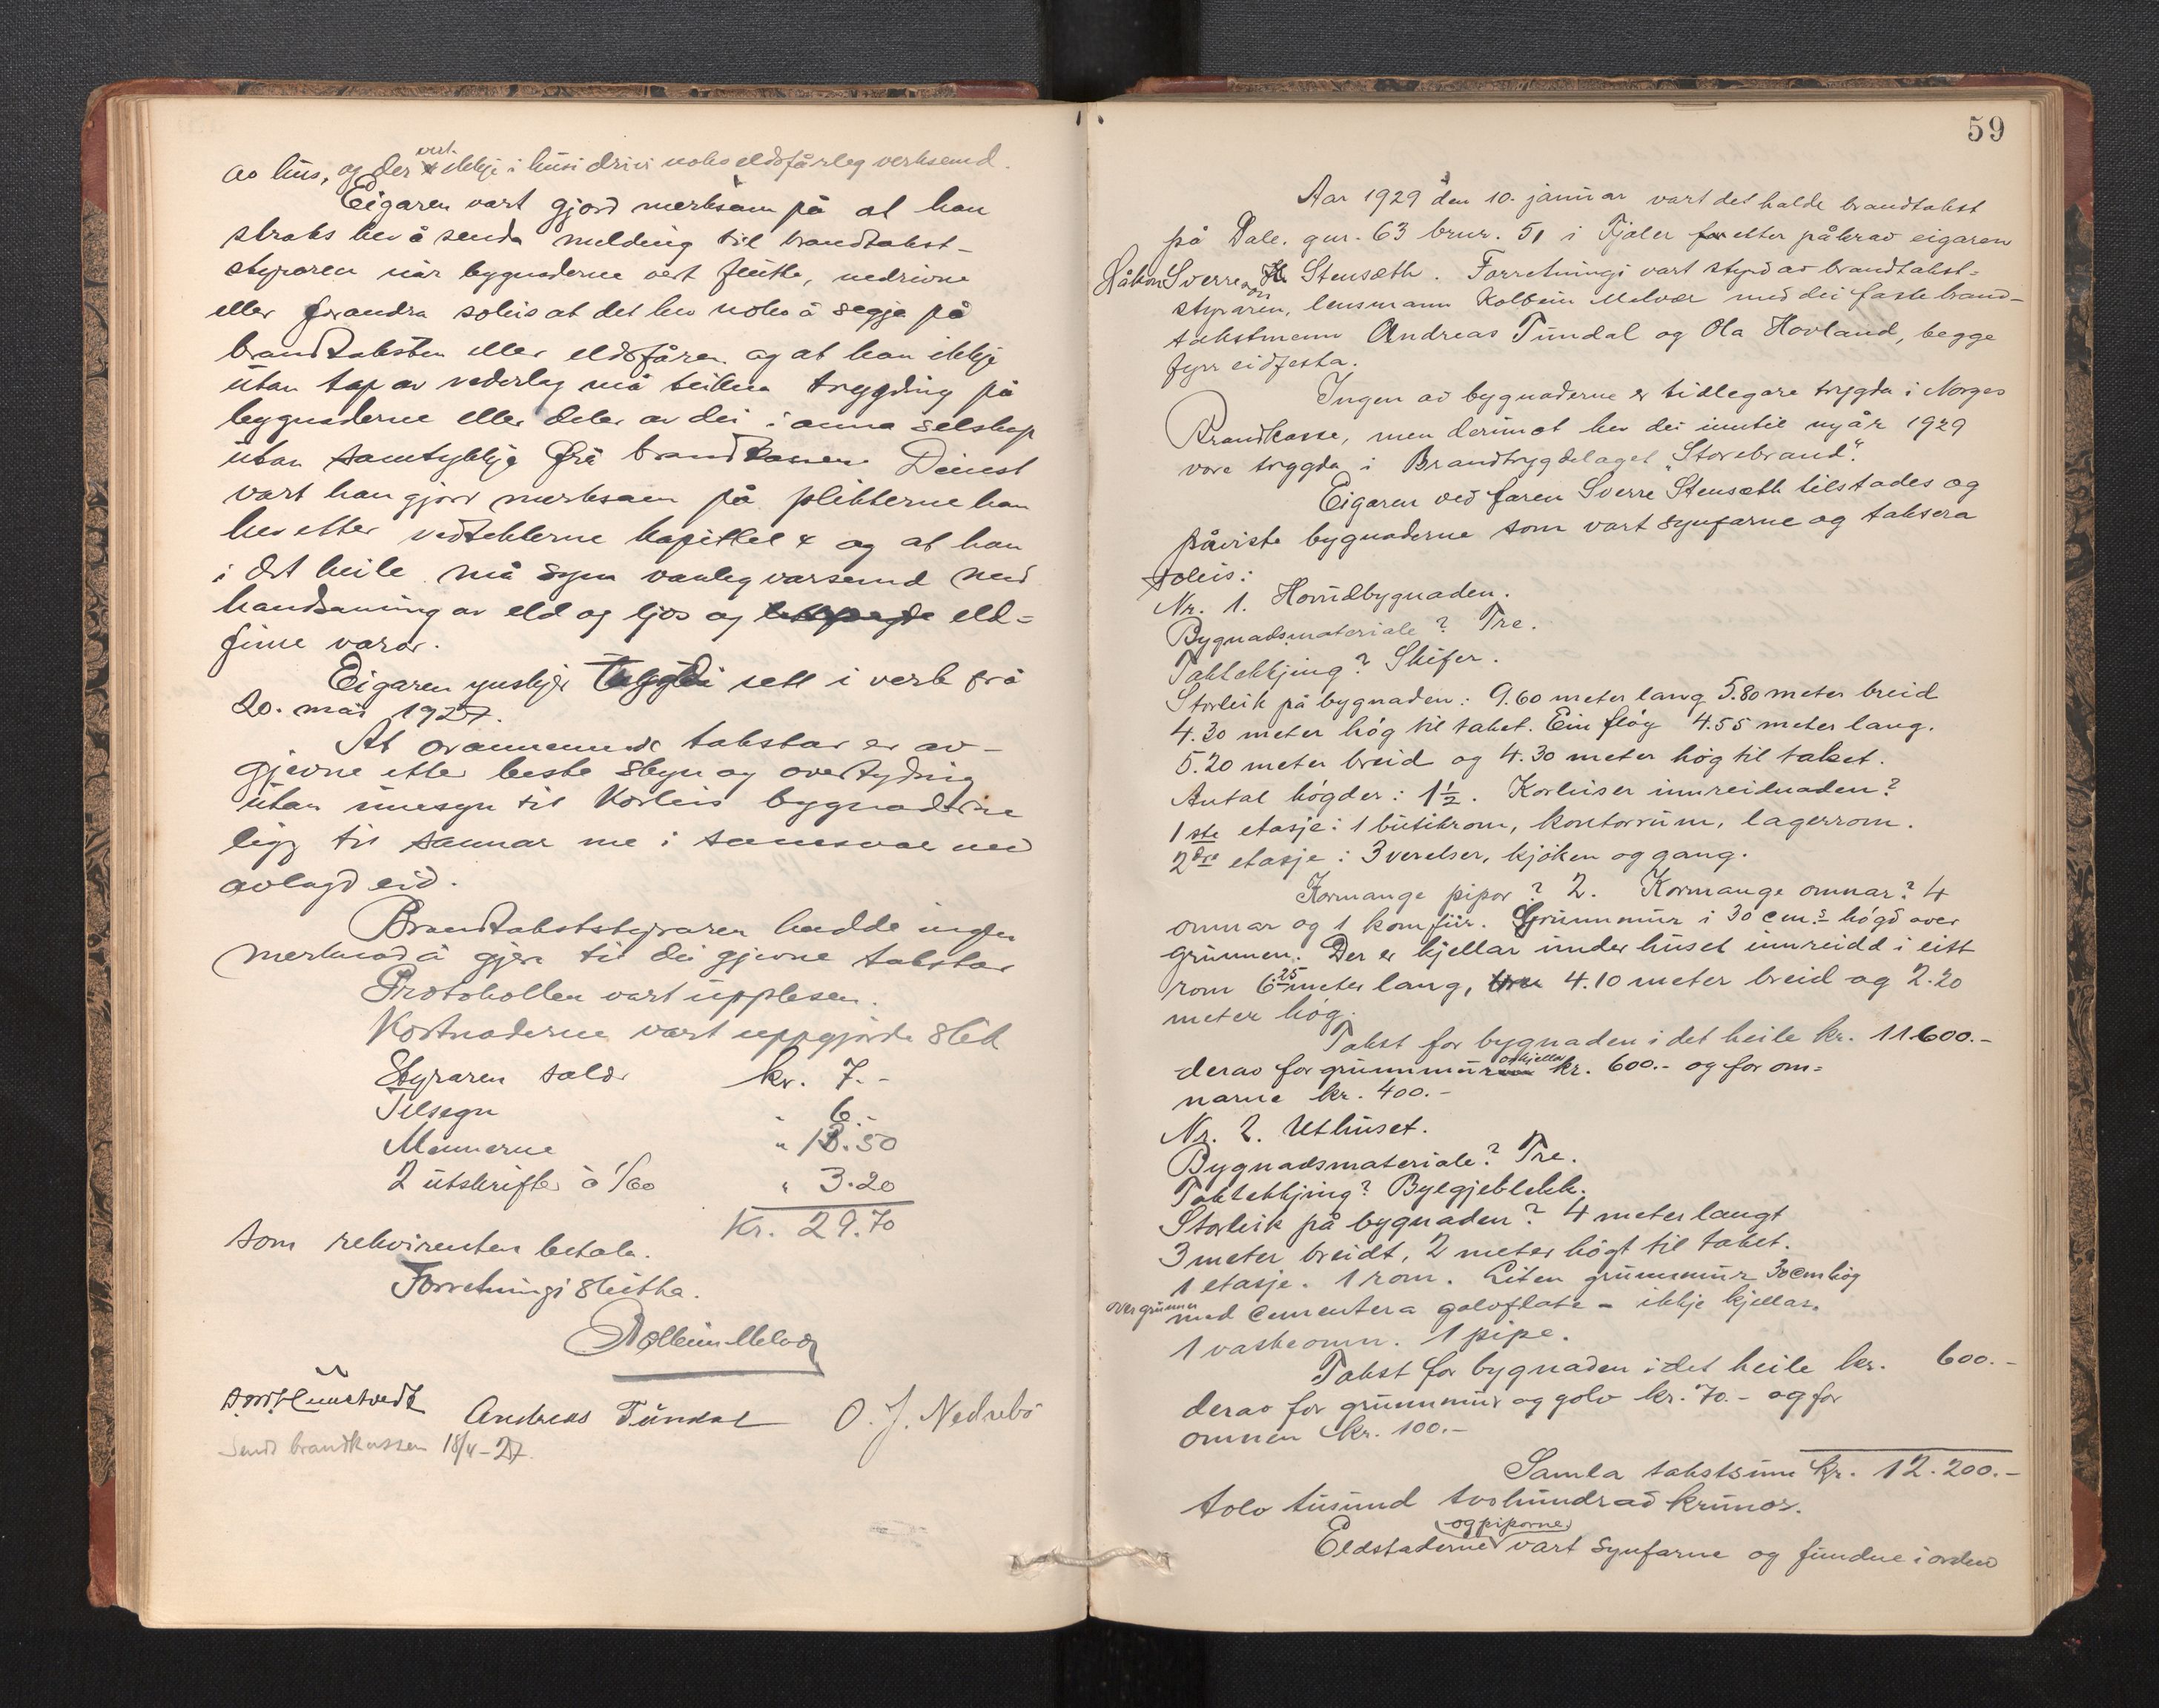 av hus, og der vert ikkje i husi drivi noko eldsfårleg verksemd.
Eigaren vart gjord merksam på at han
straks hev å senda melding til brandtakst-
styraren når bygnaderne vert flutte, nedrivne
eller forandra soleis at det hev noko å segja på
brandtaksten eller eldsfåren og at han ikkje
utan tap av vederlag må teikna trygding på
bygnaderne eller deler av dei i anna selskap
utan samtykkje frå brandkassen. Dinest
vart han gjord merksam på plikterne han
hev etter vedtekterne kapittel 4 og at han
i det heile må syna vanleg varsemd med
handsaming av eld og ljos og eld=
fime varor.
Eigaren ynskjer trygdi sett i verk frå
20. mai 1927.
At ovannemnde takstar er av-
gjevne etter beste skyn og overtyding
utan umsyn til korleis bygnaderne
ligg til sannar me i samsvar med
avlagd eid.
Brandtakststyraren hadde ingen
merknad å gjera til dei gjevne takstar
Protokollen vart upplesen.
Kostnaderne vart uppgjorde slik
Styraren salær kr. 7.-
Tilsegn " 6.-
Mennerne " 13.50
2 utskrifter à 1/60 " 3.20
Kr. 29.70
som rekvirenten betala.
Forretningi slutta.
Kolbein Melvær
Andreas Tundal O. J. Nedrebø
Sendt brandkassen 18/4-27.
59
Aar 1929 den 10. januar vart det halde brandtakst
på Dale, gnr. 63 brnr. 51 i Fjaler etter påkrav eigaren
Håkon Sverre Stensæth. Forretningi vart styrd av brandtakst=
styraren, lensmann Kolbein Melvær med dei faste brand-
takstmenn Andreas Tundal og Ola Hovland, begge
fyrr eidfesta.
Ingen av bygnaderne er tidlegare trygda i Norges
Brandkasse, men derimot hev dei inntil nyår 1929
vore trygda i Brandtrygdelaget "Storebrand".
Eigaren ved faren Sverre Stensæth tilstades og
påviste bygnaderne som vart synfarne og taksera
soleis:
Nr. 1. Hovudbygnaden.
Bygnadsmateriale? Tre.
Taktekkjing? Skifer.
Storleik på bygnaden: 9.60 meter lang 5.80 meter breid
4.30 meter høg til taket. Ein fløy 4.55 meter lang.
5.20 meter breid og 4.30 meter høg til taket.
Antal høgder: 1½. Korleis er innreidnaden?
1ste etasje: 1 butikrom, kontorrum, lagerrom.
2dre etasje: 3 verelser, kjøken og gang.
Kormange pipor? 2. Kormange omnar? 4
omnar og 1 komfür. Grunnmur i 30 cm.s høgd over
grunnen. Der er kjellar under huset innreidd i eitt
rom 6.25 meter lang, 4.10 meter breid og 2.20
meter høg.
Takst for bygnaden i det heile kr. 11600.-
derav for grunnmur og kjellar kr. 600.- og for om=
narne kr. 400.-
Nr. 2. Uthuset.
Bygnadsmateriale? Tre.
Taktekkjing? Bylgjeblekk.
Storleik på bygnaden? 4 meter langt
3 meter breidt, 2 meter høgt til taket.
1 etasje. 1 rom. Liten grunnmur 30 cm høg
over grunnen med cementera golvflate - ikkje kjellar.
1 vaskeomn. 1 pipe.
Takst for bygnaden i det heile kr. 600.-
derav for grunnmur og golv kr. 70.- og for
omnen kr. 100.-
Samla takstsum kr. 12.200.-
tolv tusund tvohundrad krunor.
Eldstaderne og piporne vart synfarne og fundne i orden